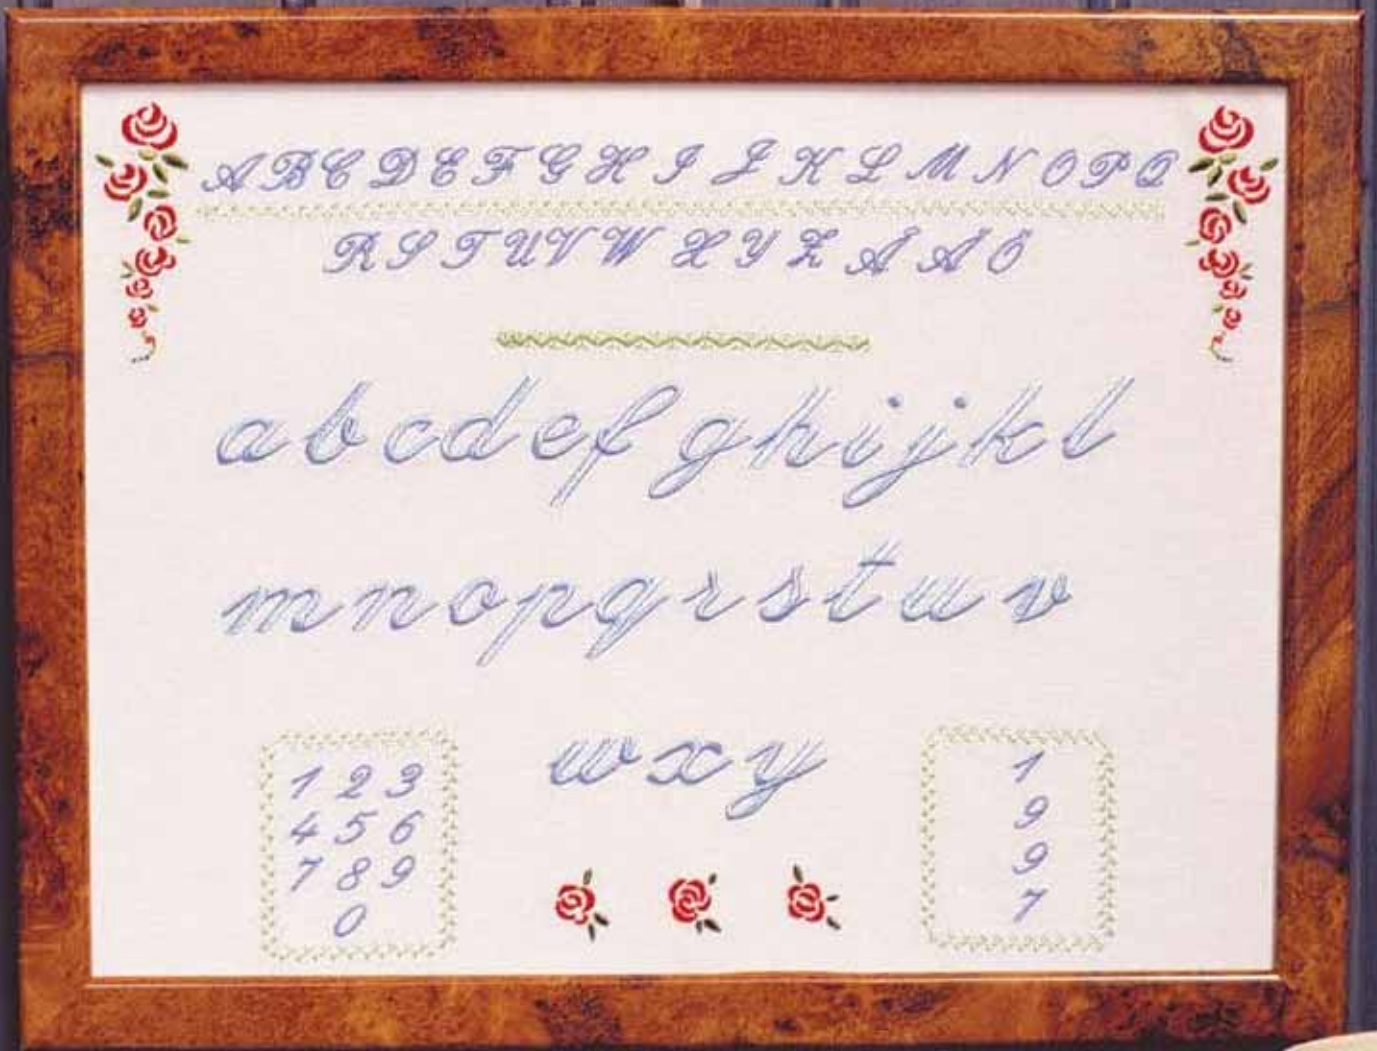 A B C D E F G H I J K L M N O P Q
R S T U V W X Y Z Å Ä Ö
a b c d e f g h i j k l
m n o p q r s t u v
w x y
1 2 3
4 5 6
7 8 9
0
1
9
9
7